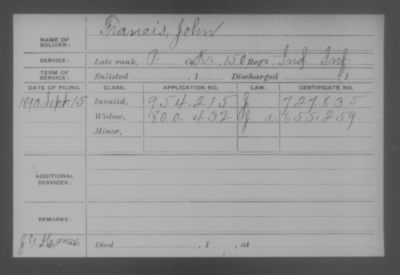 NAME OF SOLDIER: Francis, John
SERVICE: Late rank, P. Co. K, 150 Reg't Ind Inf
TERM OF SERVICE: Enlisted , 1 Discharged , 1
DATE OF FILING. CLASS. APPLICATION NO. LAW. CERTIFICATE NO.
1890 Sept 15 Invalid, 954.215 J 727.835
Widow, 800.432 J a 655.259
Minor,
ADDITIONAL SERVICES:
REMARKS:
Died , 1 , at